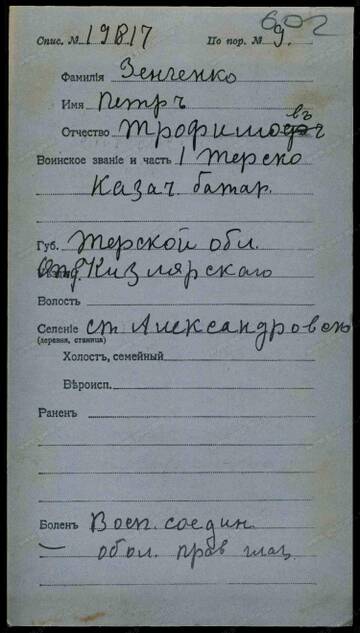 602
Спис. № 19817 По пор. № 9.
Фамилія Зенченко
Имя Петръ
Отчество Трофимовъ
Воинское званіе и часть 1 Терско
Казач. батар.
Губ. Терской обл.
Отд. Кизлярскаго
Волость
Селеніе ст Александровско
(деревня, станица)
Холостъ, семейный
Вѣроисп.
Раненъ
Боленъ Восп. соедин.
— обол. прав глаз.